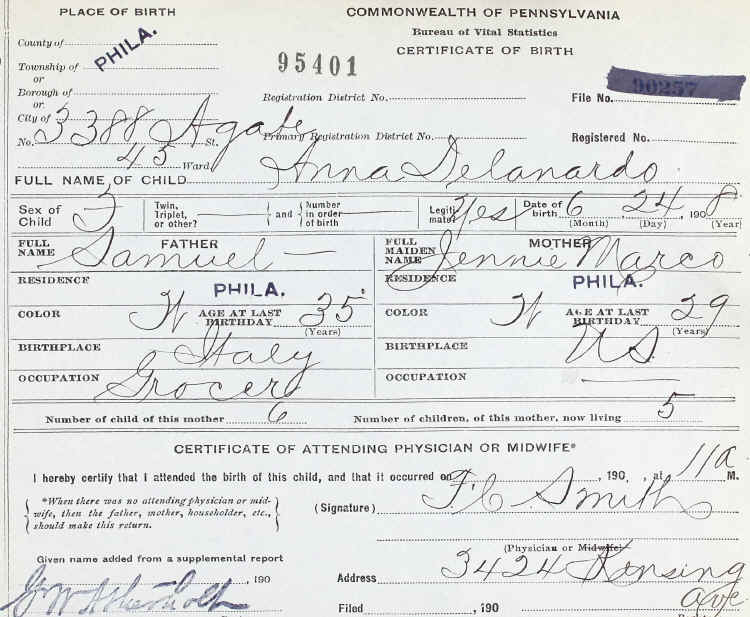 PLACE OF BIRTH
COMMONWEALTH OF PENNSYLVANIA
Bureau of Vital Statistics
CERTIFICATE OF BIRTH
County of
PHILA.
Township of
or
Borough of
or
City of
95401
Registration District No.
File No. 90257
No. 3388 Agate St.
Primary Registration District No.
Registered No.
45 Ward
FULL NAME OF CHILD Anna Delanardo
Sex of Child
Twin, Triplet, or other?
and
Number in order of birth
Legitimate? Yes
Date of birth 6 24 1908
(Month) (Day) (Year)
FULL NAME FATHER Samuel —
FULL MAIDEN NAME MOTHER Jennie Marco
RESIDENCE PHILA.
RESIDENCE PHILA.
COLOR W AGE AT LAST BIRTHDAY 35 (Years)
COLOR W AGE AT LAST BIRTHDAY 29 (Years)
BIRTHPLACE Italy
BIRTHPLACE U.S.
OCCUPATION Grocer
OCCUPATION —
Number of child of this mother 6
Number of children, of this mother, now living 5
CERTIFICATE OF ATTENDING PHYSICIAN OR MIDWIFE*
I hereby certify that I attended the birth of this child, and that it occurred on , 190 , at 11 a M.
*When there was no attending physician or mid-
wife, then the father, mother, householder, etc.,
should make this return.
(Signature) F. C. Smith
(Physician or Midwife)
Given name added from a supplemental report
190
Address 3424 Kensing
ave
Filed , 190